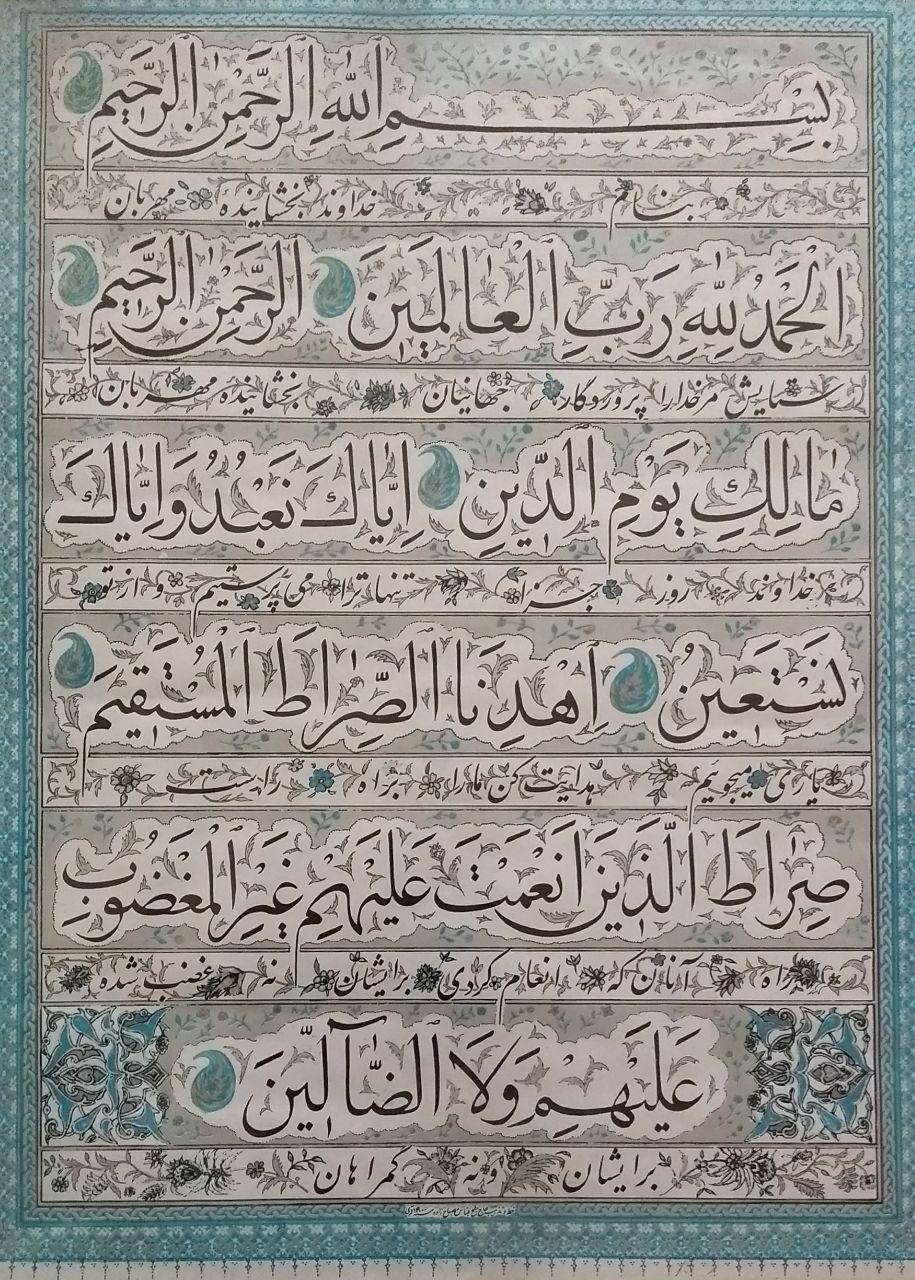 بِسْمِ اللهِ الرَّحْمٰنِ الرَّحيمِ
بنام خداوند بخشاینده مهربان
اَلْحَمْدُ لِلّٰهِ رَبِّ الْعٰالَمينَ اَلرَّحْمٰنِ الرَّحيمِ
ستایش مر خدا را پروردگار جهانیان بخشاینده مهربان
مٰالِكِ يَوْمِ الدّينِ اِيّٰاكَ نَعْبُدُ وَاِيّٰاكَ
خداوند روز جزا تنها ترا می پرستیم و از تو
نَسْتَعينُ اِهْدِنَا الصِّرٰاطَ الْمُسْتَقيمَ
یاری میجوییم هدایت کن ما را براه راست
صِرٰاطَ الَّذينَ اَنْعَمْتَ عَلَيْهِمْ غَيْرِ الْمَغْضُوبِ
راه آنان که انعام کردی برایشان نه غضب شده
عَلَيْهِمْ وَلَا الضّٰآلّينَ
برایشان و نه گمراهان